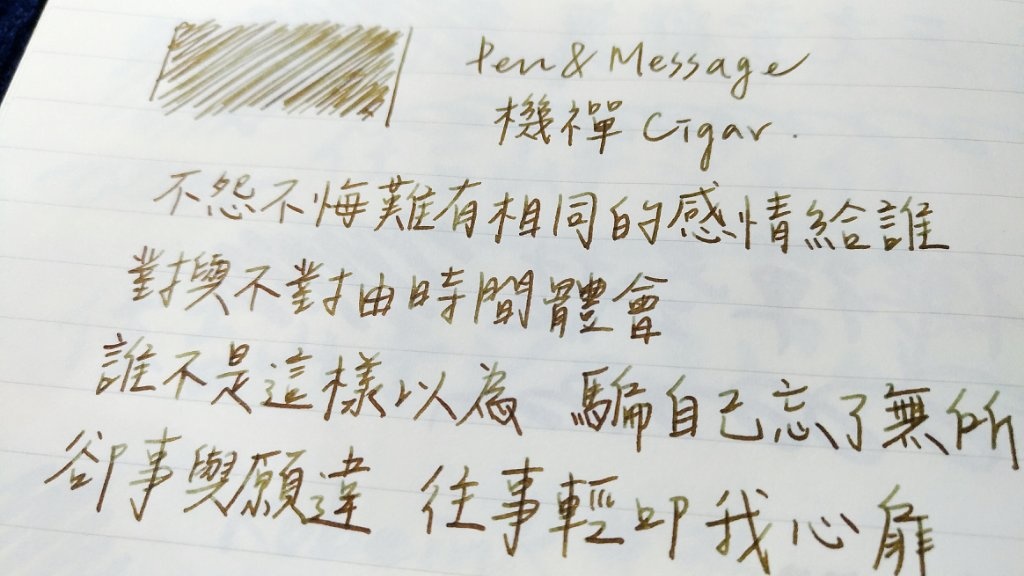 Pen & Message
機禪 Cigar.
不怨不悔難有相同的感情給誰
對換不對抽時間體會
誰不是這樣以為 騙自己忘了無所
卻事與願違 往事輕叩我心扉